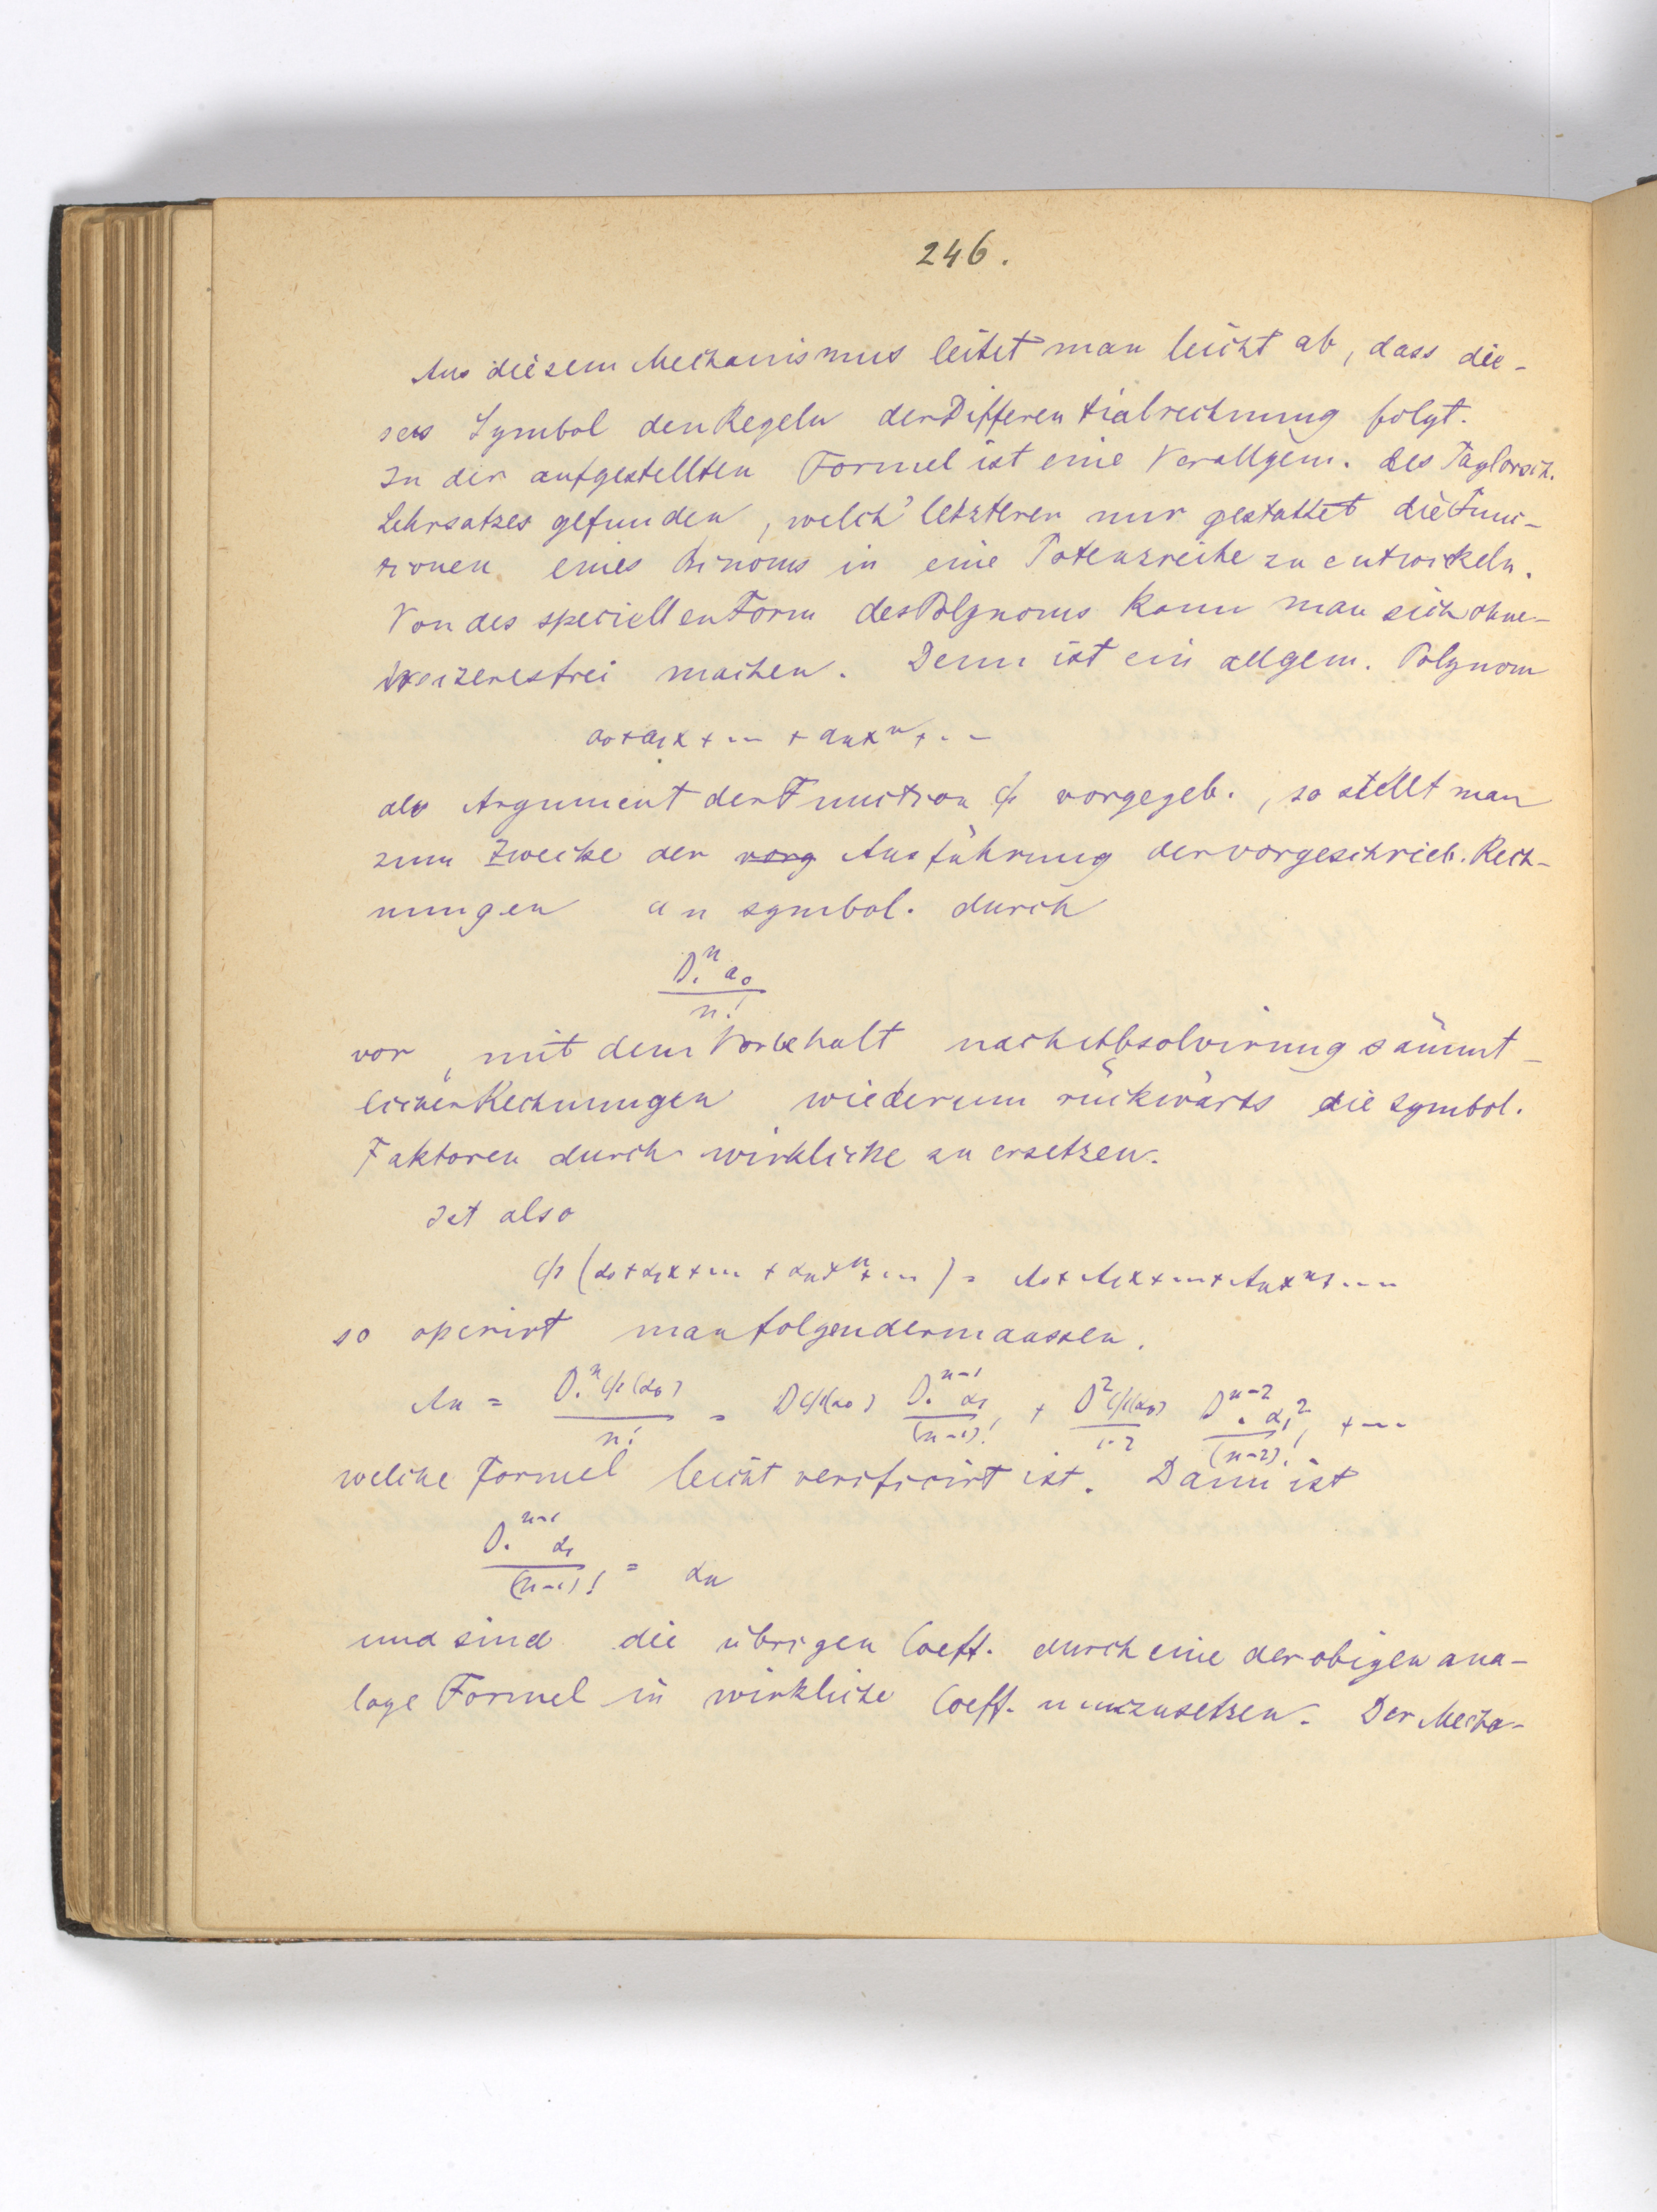 246.
Aus diesem Mechanismus leitet man leicht ab, dass die-
ses Symbol den Regeln der Differentialrechnung folgt.
In der aufgestellten Formel ist eine Verallgem. des Taylorsch.
Lehrsatzes gefunden, welch' letzterer nur gestattet die Func-
tionen eines Binoms in eine Potenzreihe zu entwickeln.
Von der speciellen Form des Polynoms kann man sich ohne-
weiteres frei machen. Denn ist ein allgem. Polynom
a₀ + a₁x + ... + aₙxⁿ + ...
als Argument der Function φ vorgegeb., so stellt man
zum Zwecke der vorg Ausführung der vorgeschrieb. Rech-
nungen aₙ symbol. durch
D.ⁿ a₀ / n!
vor, mit dem Vorbehalt nach Absolvirung sämmt-
licher Rechnungen wiederum rückwärts die symbol.
Faktoren durch wirkliche zu ersetzen.
Ist also
φ (α₀ + α₁x + ... + αₙxⁿ + ...) = A₀ + A₁x + ... + Aₙxⁿ + ...
so operirt man folgendermaassen.
Aₙ = D.ⁿ φ(α₀) / n! = Dφ(α₀) D.ⁿ⁻¹ α₁ / (n-1)! + D²φ(α₀) / 1·2 D.ⁿ⁻² α₁² / (n-2)! + ...
welche Formel leicht verificirt ist. Dann ist
D.ⁿ⁻¹ α₁ / (n-1)! = αₙ
und sind die übrigen Coeff. durch eine der obigen ana-
loge Formel in wirkliche Coeff. umzusetzen. Der Mecha-